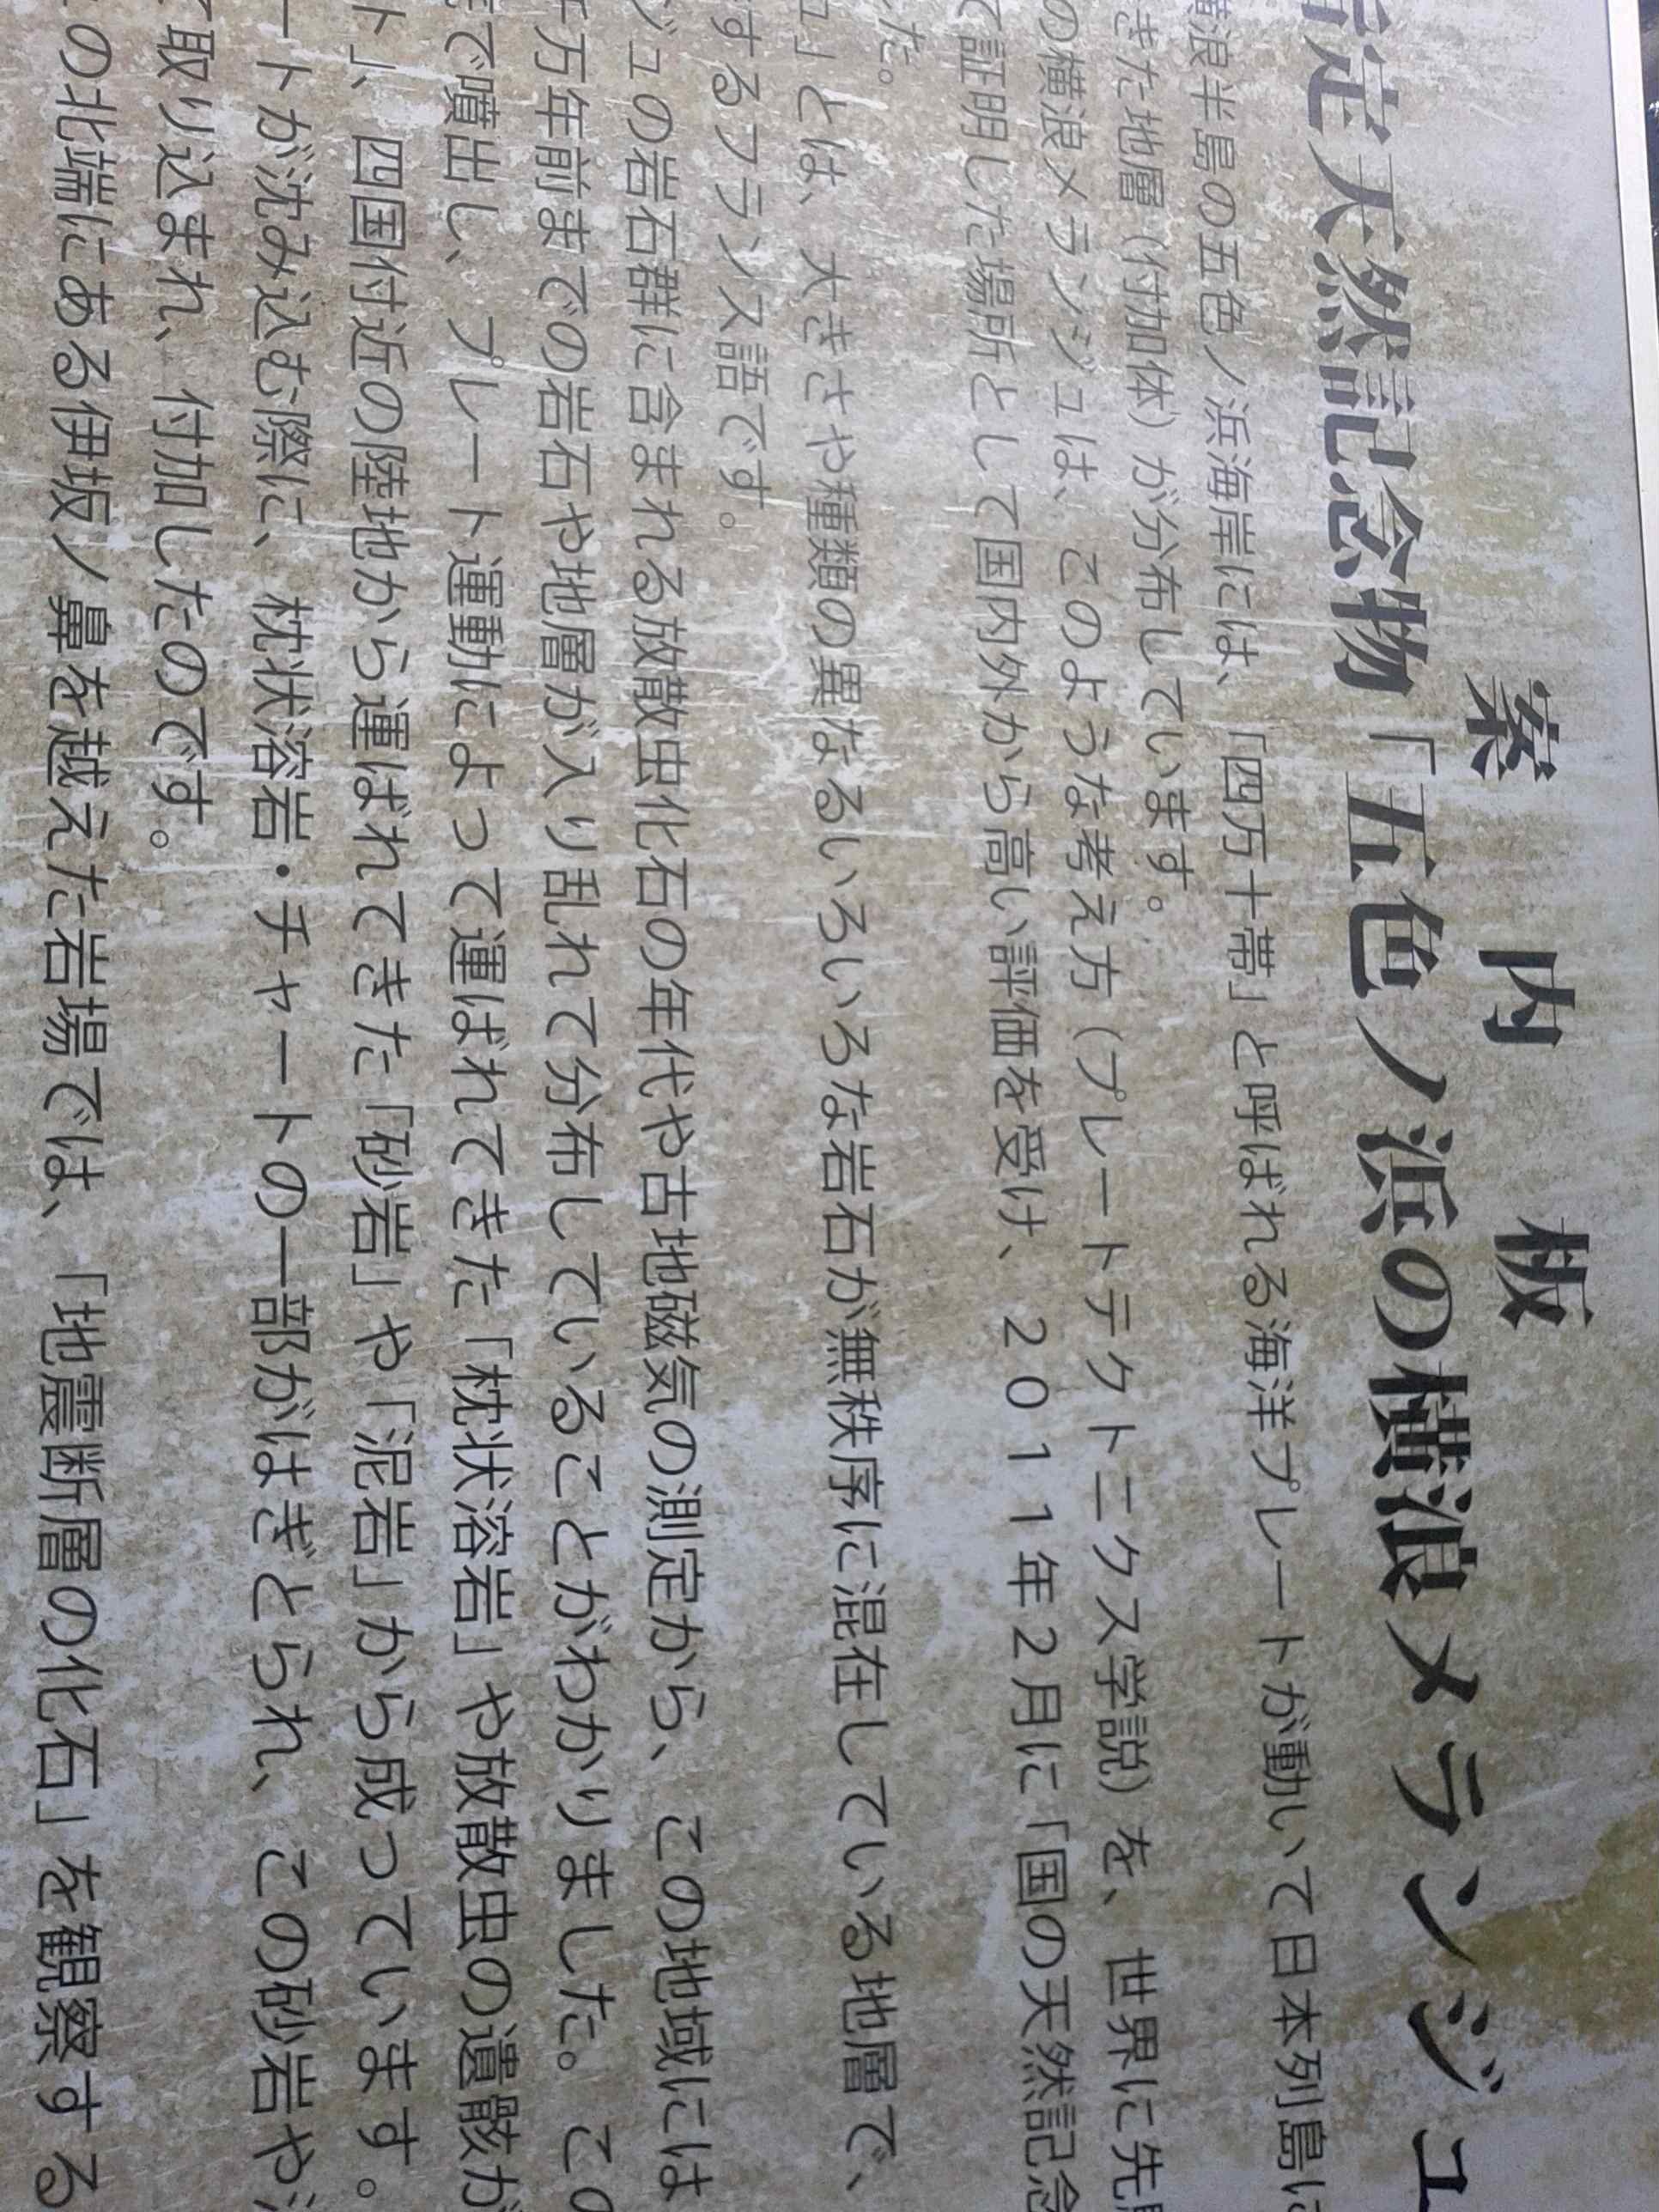 案内板
指定天然記念物「五色ノ浜の横浪メランジュ
横浪半島の五色ノ浜海岸には、「四万十帯」と呼ばれる海洋プレートが動いて日本列島に
きた地層（付加体）が分布しています。
の横浪メランジュは、このような考え方（プレートテクトニクス学説）を、世界に先
て証明した場所として国内外から高い評価を受け、２０１１年２月に「国の天然記念
た。
ュ」とは、大きさや種類の異なるいろいろな岩石が無秩序に混在している地層で、
するフランス語です。
ジュの岩石群に含まれる放散虫化石の年代や古地磁気の測定から、この地域には
千万年前までの岩石や地層が入り乱れて分布していることがわかりました。この
で噴出し、プレート運動によって運ばれてきた「枕状溶岩」や放散虫の遺骸が
ト」、四国付近の陸地から運ばれてきた「砂岩」や「泥岩」から成っています。
ートが沈み込む際に、枕状溶岩・チャートの一部がはぎとられ、この砂岩や
て取り込まれ、付加したのです。
の北端にある伊坂ノ鼻を越えた岩場では、「地震断層の化石」を観察する